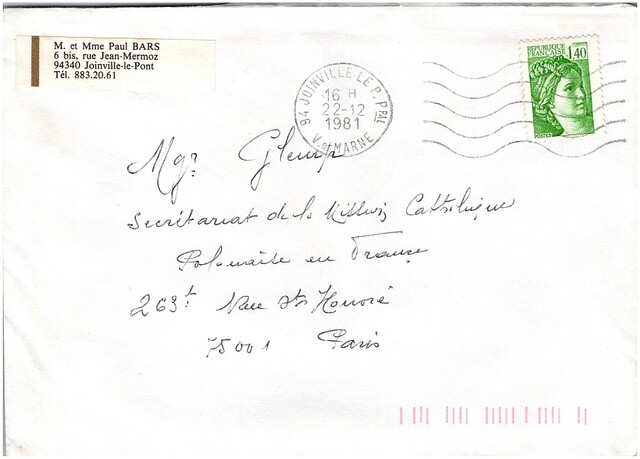 M. et Mme Paul BARS
6 bis, rue Jean-Mermoz
94340 Joinville-le-Pont
Tél. 883.20.61
REPUBLIQUE
FRANÇAISE
1,40
POSTES
94 JOINVILLE LE P. PPAL
16 H
22-12
1981
V. DE MARNE
Mgr Glemp
Secrétariat de la Mission Catholique
Polonaise en France
263 t. Rue St Honoré
75001 Paris